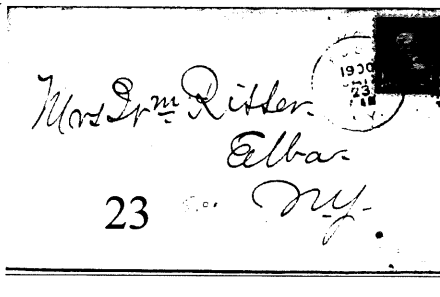 1900
23
Mrs Irvin Ritter.
Elba
N.Y.
23